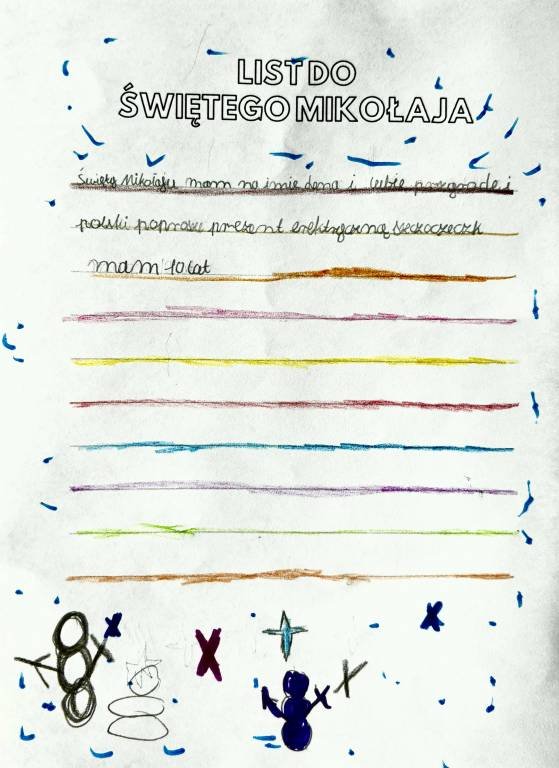 LIST DO
ŚWIĘTEGO MIKOŁAJA
Święty Mikołaju mam na imie i lubie i
polski poprosze prezent elektryczną
mam 10 lat